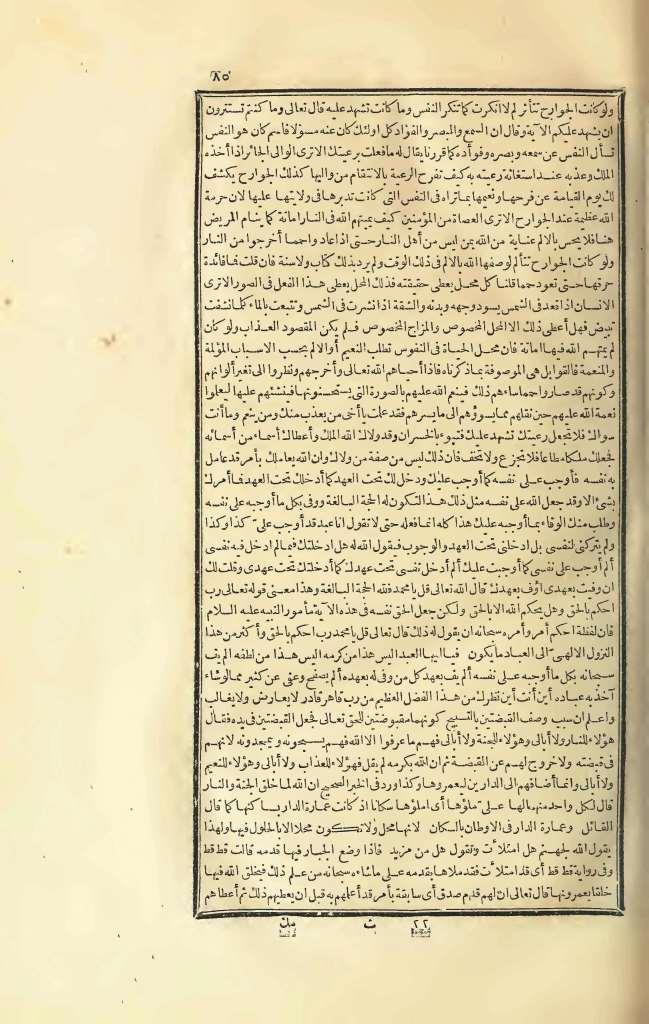 ٨٥
ولو كانت الجوارح تتأثر لم لا انكرت كما تنكر النفس وما كانت تشهد عليه قال تعالى وما كنتم تستترون
ان يشهد عليكم الآية وقال ان السمع والبصر والفؤاد كل اولئك كان عنه مسؤلا فاسم كان هو النفس
تسأل النفس عن سمعه وبصره وفؤاده كما قررنا يقال له ما فعلت برعيتك الا ترى الوالى الجائر اذا أخذه
الملك وعذبه عند استغاثة رعيته به كيف تفرح الرعية بالانتقام من واليها كذلك الجوارح يكشف
لك يوم القيامة عن فرحها ونعيمها بما تراه فى النفس التى كانت تدبرها فى ولايتها عليها لان حرمة
الله عظيمة عند الجوارح الا ترى العصاة من المؤمنين كيف يميتهم الله فى النار اماتة كما ينام المريض
هنا فلا يحس بالالم عناية من الله بمن ليس من أهل النار حتى اذا عادوا حمما أخرجوا من النار
ولو كانت الجوارح تتألم لوصفها الله بالالم فى ذلك الوقت ولم يرد بذلك كتاب ولا سنة فان قلت فما فائدة
حرقها حتى تعود حمما قلنا كل محل يعطى حقيقته فذلك المحل يعطى هذا الفعل فى الصور الا ترى
الانسان اذا قعد فى الشمس يسود وجهه وبدنه والشقة اذا نشرت فى الشمس وتتبعت بالماء كلما نشفت
تبيض فهل أعطى ذلك الا المحل المخصوص والمزاج المخصوص فلم يكن المقصود العذاب ولو كان
لم يمتهم الله فيها اماتة فان محل الحياة فى النفوس تطلب النعيم أو الالم بحسب الاسباب المؤلمة
والمنعمة فالقوابل هى الموصوفة بما ذكرناه فاذا أحياهم الله تعالى وأخرجهم ونظروا الى تغير ألوانهم
وكونهم قد صاروا حمما ساءهم ذلك فينعم الله عليهم بالصورة التى يستحسنونها فينشئهم عليها ليعلموا
نعمة الله عليهم حين نقلهم مما يسوؤهم الى ما يسرهم فقد علمت يا أخى من يعذب منك ومن ينعم وما أنت
سواك فلا تجعل رعيتك تشهد عليك فتبوء بالخسران وقد ولاك الله الملك وأعطاك اسما من أسمائه
فجعلك ملكا مطاعا فلا تجزع ولا تخف فان ذلك ليس من صفة من ولاك وان الله يعاملك بأمر قد عامل
به نفسه فأوجب على نفسه كما أوجب عليك ودخل لك تحت العهد كما أدخلك تحت العهد فما أمرك
بشئ الا وقد جعل الله على نفسه مثل ذلك هذا لتكون له الحجة البالغة ووفى بكل ما أوجبه على نفسه
وطلب منك الوفاء بما أوجبه عليك هذا كله انما فعله حتى لا تقول انا عبد قد أوجب علىّ كذا وكذا
ولم يتركنى لنفسى بل ادخلنى تحت العهد والوجوب فيقول الله له هل ادخلتك فيما لم ادخل فيه نفسى
ألم أوجب على نفسى كما أوجبت عليك ألم أدخل نفسى تحت عهدك كما أدخلتك تحت عهدى وقلت لك
ان وفيت بعهدى أوف بعهدك قال الله تعالى قل يا محمد فلله الحجة البالغة وهذا معنى قوله تعالى رب
احكم بالحق وهل يحكم الله الا بالحق ولكن جعل الحق نفسه فى هذه الآية مأمور النبيه عليه السلام
فان لفظة احكم أمر وأمره سبحانه ان يقول له ذلك قال تعالى قل يا محمد رب احكم بالحق وأكثر من هذا
النزول الالهى الى العباد ما يكون فيا ايها العبد اليس هذا من كرمه اليس هذا من لطفه ألم يف
سبحانه بكل ما أوجبه على نفسه ألم يف بعهد كل من وفى له بعهده ألم يصفح وعفى عن كثير مما لو شاء
آخذ به عباده أين أنت أين نظرك من هذا الفضل العظيم من رب قاهر قادر لا يعارض ولا يغالب
واعلم ان سبب وصف القبضتين بالتسبيح كونهما مقبوضتين للحق تعالى فجعل القبضتين فى يده فقال
هؤلاء للنار ولا أبالى وهؤلاء للجنة ولا أبالى فهم ما عرفوا الا الله فهم يسبحونه ويمجدونه لانهم
فى قبضته ولا خروج لهم عن القبضة ثم ان الله بكرمه لم يقل فهؤلاء للعذاب ولا أبالى وهؤلاء للنعيم
ولا أبالى وانما أضافهم الى الدارين ليعمروها وكذا ورد فى الخبر الصحيح ان الله لما خلق الجنة والنار
قال لكل واحدة منهما لها علىّ ملؤها أى املؤها سكانا اذ كانت عمارة الدار بساكنها كما قال
القائل وعمارة الدار فى الاوطان بالسكان لانها محل ولا تكون محلا الا بالحلول فيها ولهذا
يقول الله لجهنم هل امتلأت وتقول هل من مزيد فاذا وضع الجبار فيها قدمه قالت قط قط
وفى رواية قط قط أى قد امتلأت فقد ملأها بقدمه على ما شاءه سبحانه من علم ذلك فيخلق الله فيها
خلقا يعمرونها قال تعالى ان لهم قدم صدق أى سابقة بأمر قد أعلمهم به قبل ان يعطيهم ذلك ثم أعطاهم
٢٢ ث مك